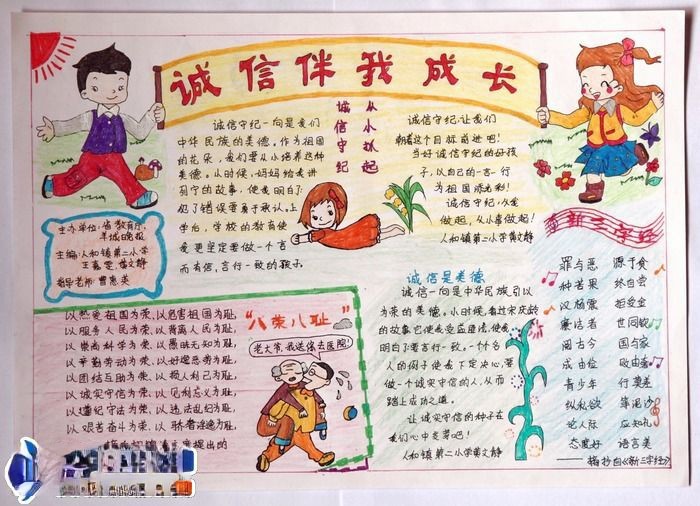 诚信伴我成长
从小执起
诚信守纪
诚信守纪一向是我们
中华民族的美德。作为祖国
的花朵，我们要从小培养这种
美德。从小时，妈妈给我讲
列宁的故事，使我明白了：
犯了错误要勇于承认。上
学后，学校的教育使
我更坚定要做一个言
而有信，言行一致的孩子。
诚信守纪，让我们
朝着这个目标前进吧！
当好诚信守纪的好孩
子，以自己的一言一行
为祖国添光彩！
诚信守纪，从我
做起，从小事做起！
人和镇第二小学黄文静
主办单位：省教育厅、
羊城晚报
主编：人和镇第二小学
指导老师：曹惠英
“八荣八耻”
以热爱祖国为荣、以危害祖国为耻，
以服务人民为荣、以背离人民为耻，
以崇尚科学为荣、以愚昧无知为耻，
以辛勤劳动为荣、以好逸恶劳为耻，
以团结互助为荣、以损人利己为耻，
以诚实守信为荣、以见利忘义为耻，
以遵纪守法为荣、以违法乱纪为耻，
以艰苦奋斗为荣、以骄奢淫逸为耻。
提出的
老大爷，我送你去医院！
诚信是美德
诚信一向是中华民族引以
为荣的美德。小时候，看过宋庆龄
的故事它使我受益匪浅，使我
明白了要言行一致。一个个名
人的例子使我下定决心，要
做一个诚实守信的人，从而
踏上成功之道。
让诚实守信的种子在
我们心中发芽吧！
人和镇第二小学黄文静
新三字经
罪与恶 源于贪
种苦果 终自尝
汉杨震 拒受金
廉洁者 世同钦
阅古今 国与家
成由俭 败由奢
青少年 行莫差
纵私欲 等泥沙
论人际 应知礼
态度好 语言美
——摘抄自《新三字经》